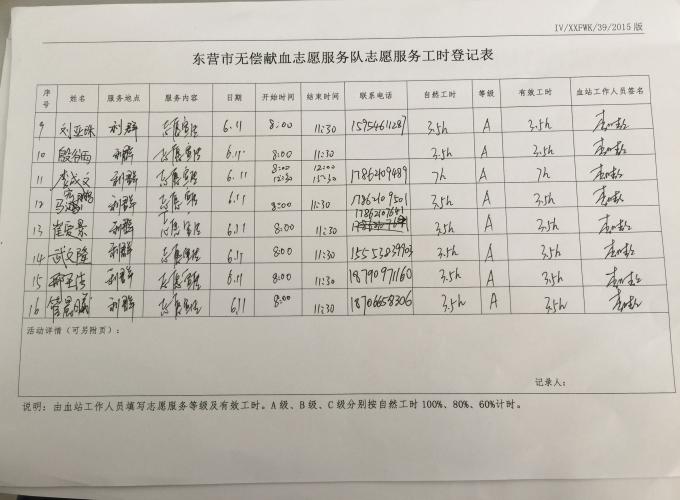 IV/XXFWK/39/2015 版
东营市无偿献血志愿服务队志愿服务工时登记表
序号 姓名 服务地点 服务内容 日期 开始时间 结束时间 联系电话 自然工时 等级 有效工时 血站工作人员签名
9 刘亚珠 利群 志愿宣传 6.11 8:00 11:30 15954611287 3.5h A 3.5h
10 利群 志愿宣传 6.11 8:00 11:30 3.5h A 3.5h
11 李成文 利群 志愿宣传 6.11 8:00 12:00 12:30 15:30 17862109489 7h A 7h
12 利群 志愿宣传 6.11 8:00 11:30 17862109501 3.5h A 3.5h
13 利群 志愿宣传 6.11 8:00 11:30 17862107641 3.5h A 3.5h
14 武文隆 利群 志愿宣传 6.11 8:00 11:30 15553839903 3.5h A 3.5h
15 利群 志愿宣传 6.11 8:00 11:30 18790971160 3.5h A 3.5h
16 利群 志愿宣传 6.11 8:00 11:30 18706658306 3.5h A 3.5h
活动详情（可另附页）：
记录人：
说明：由血站工作人员填写志愿服务等级及有效工时。A级、B级、C级分别按自然工时100%、80%、60%计时。